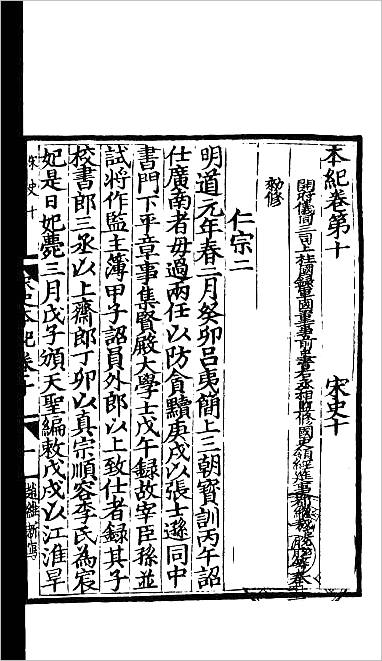 本紀卷第十 宋史十
開府儀同三司上柱國錄軍國重事前中書右丞相監修國史領經筵事都總裁臣脫脫奉
勑修
仁宗二
明道元年春二月癸卯呂夷簡上三朝寶訓丙午詔
仕廣南者毋過兩任以防貪黷庚戌以張士遜同中
書門下平章事集賢殿大學士戊午録故宰臣孫並
試將作監主簿甲子詔員外郎以上致仕者録其子
校書郎三丞以上齋郎丁卯以真宗順容李氏為宸
妃是日妃薨三月戊子頒天聖編敕戊戌以江淮旱
宋史十
宋史本紀卷十
一